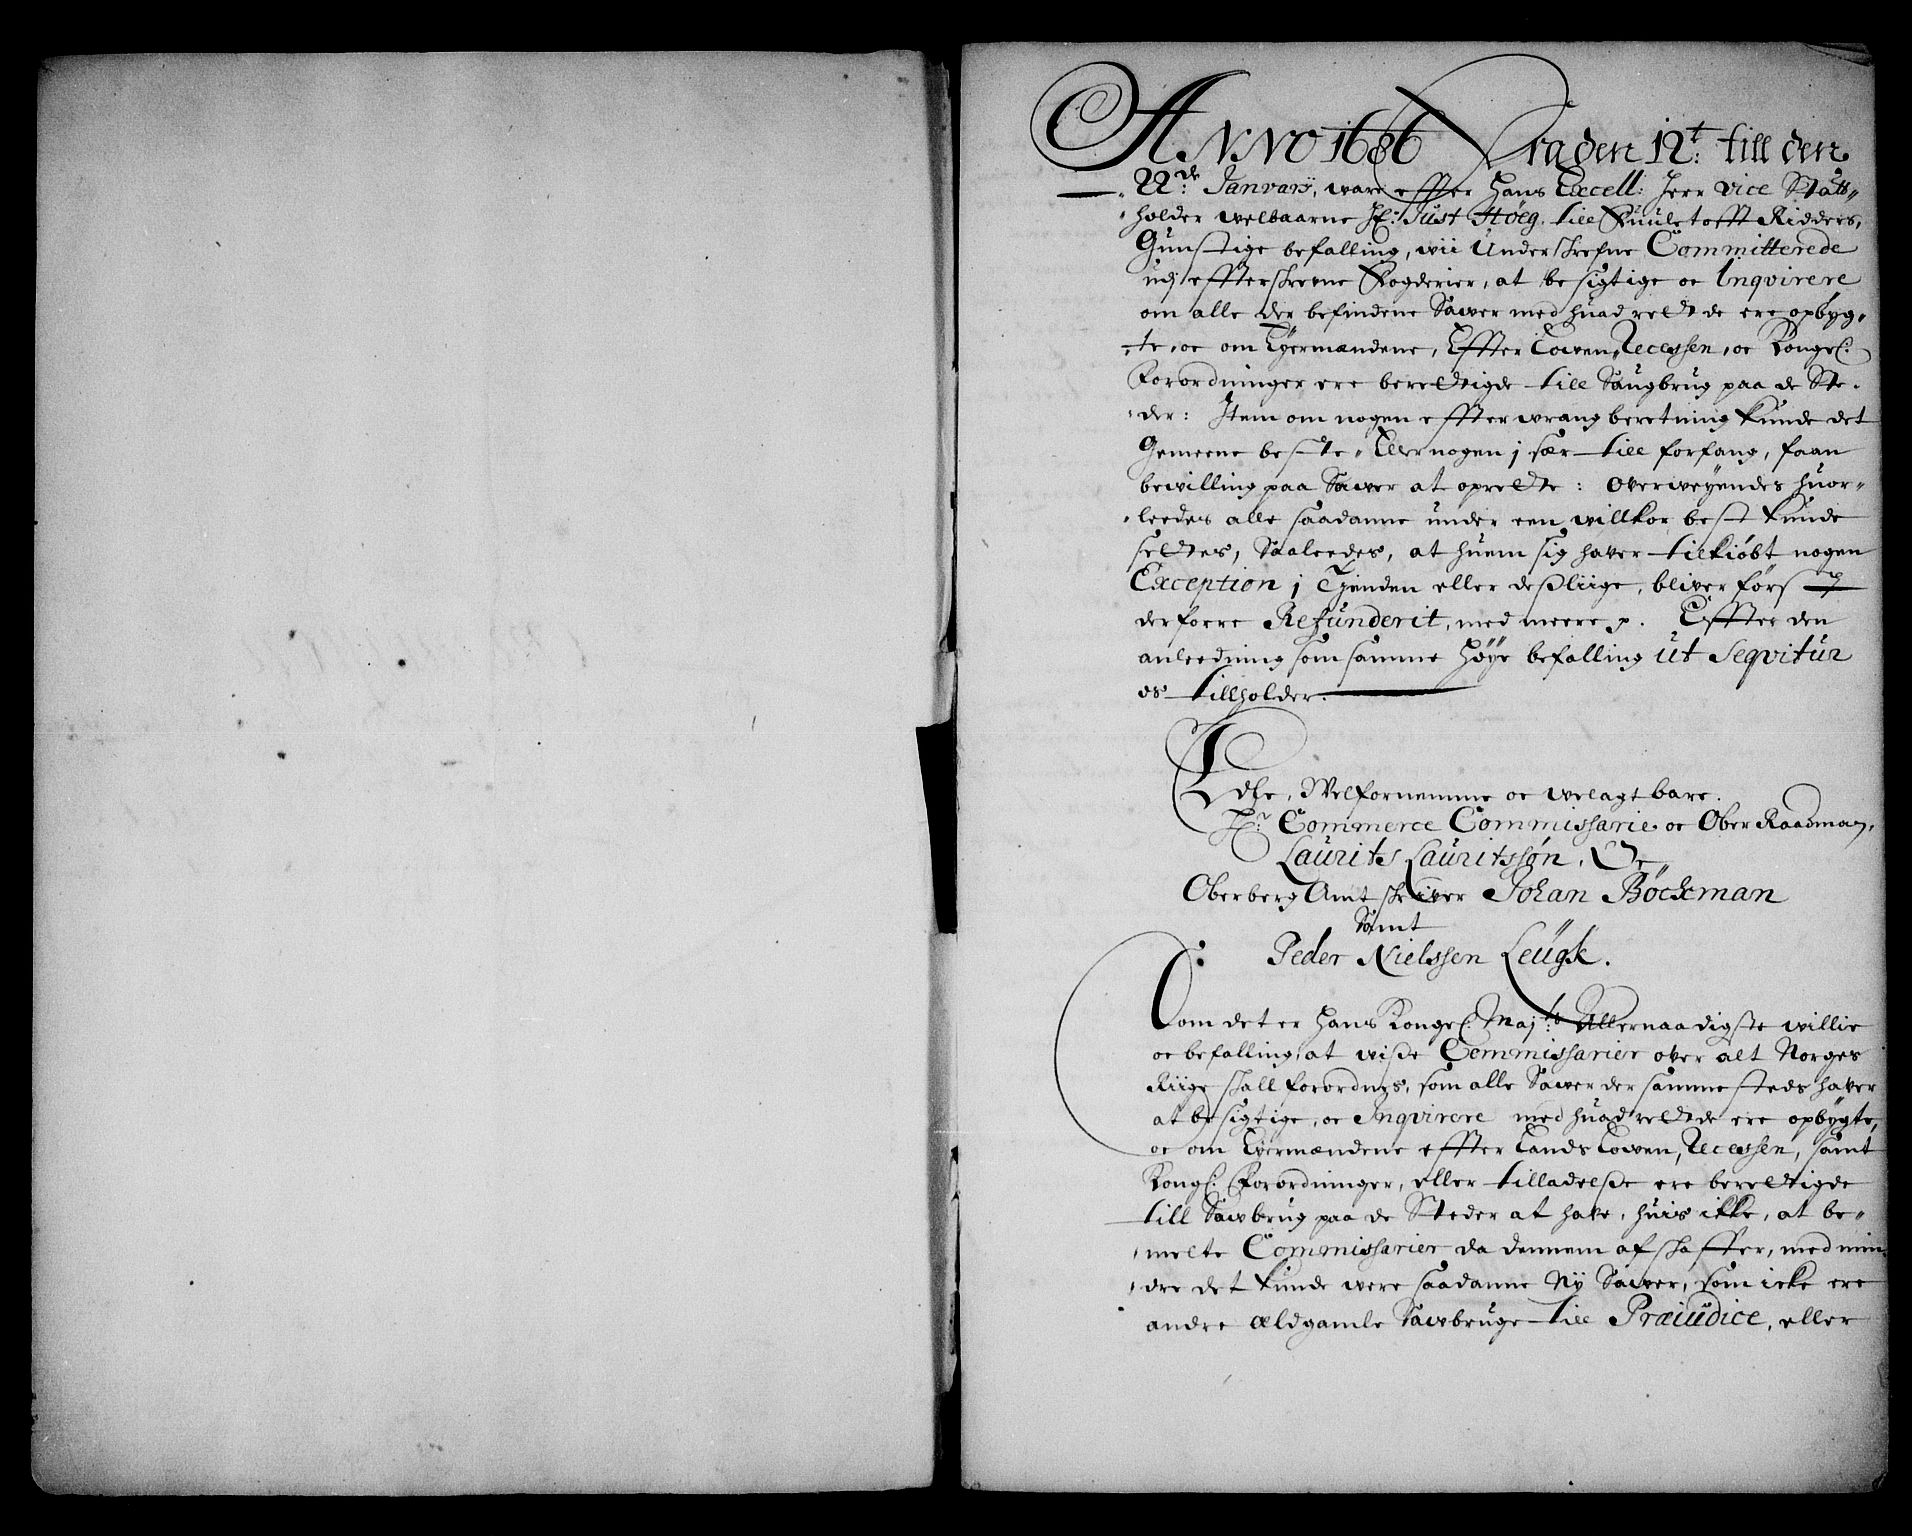 ANNO 1686 Fra den 12t: till den
22de: Januarÿ, ware effter Hans Excell: Herr Vice Statt„
„holder welbaarne Hr: Just Høeg, till Fuuletofft Ridders,
Gunstige befalling, wii Underschrefne Committerede
udj effterschrevne Fogderier, at besigtige oc Inqvirere
om alle der befindene Sawer med huad rett de ere opbyg„
„te, oc om Eyermændene, Effter Lowen, Recessen, oc Kongel:
Forordninger ere berettigde till Saugbrug paa de Ste„
„der: Item om nogen effter wrang beretning kunde det
Gemeene beste, Eller nogen j sær till forfang, faan
bewilling paa Sawer at oprette: Overweyendes huor„
„leedes alle saadanne under een willkor best kunde
settes, Saaleedes, at huem sig haver tilkiøbt nogen
Exception j Tienden eller desliige, bliver først
derforre Refunderit, med meere p. Effter den
anleedning som samme Høye befalling ut Seqvitur
os tillholder.
Edle, Welfornemme oc welagtbare.
Hr: Commerce Commissarie oc Ober Raadman,
Laurits Lauritssøn, Oc
Oberberg Amtschriver Johan Böckman
Samt
Peder Nielssen Leügk.
Som det er Hans Kongel: Majts: Allernaadigste willie
oc befalling, at wisse Commissarier over alt Norges
Riige schall forordnes, som alle Sawer der sammesteds haver
at besigtige, oc Inqvirere med huad rett de ere opbygte,
oc om Eyermændene effter Lands Lowen, Recessen, samt
Kongl: Forordninger, eller tilladelse ere berettigde
till Sawbrug paa de Steder at have, huis ikke, at be„
„melte Commissarier da dennem afschaffer, med min„
„dre det kunde were saadanne Ny Sawer, som icke ere
andre ældgamle Sawbruge till Præiüdice, eller